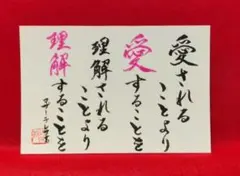 愛される
ことより
愛することを
理解される
ことより
理解することを
マザーテレサ